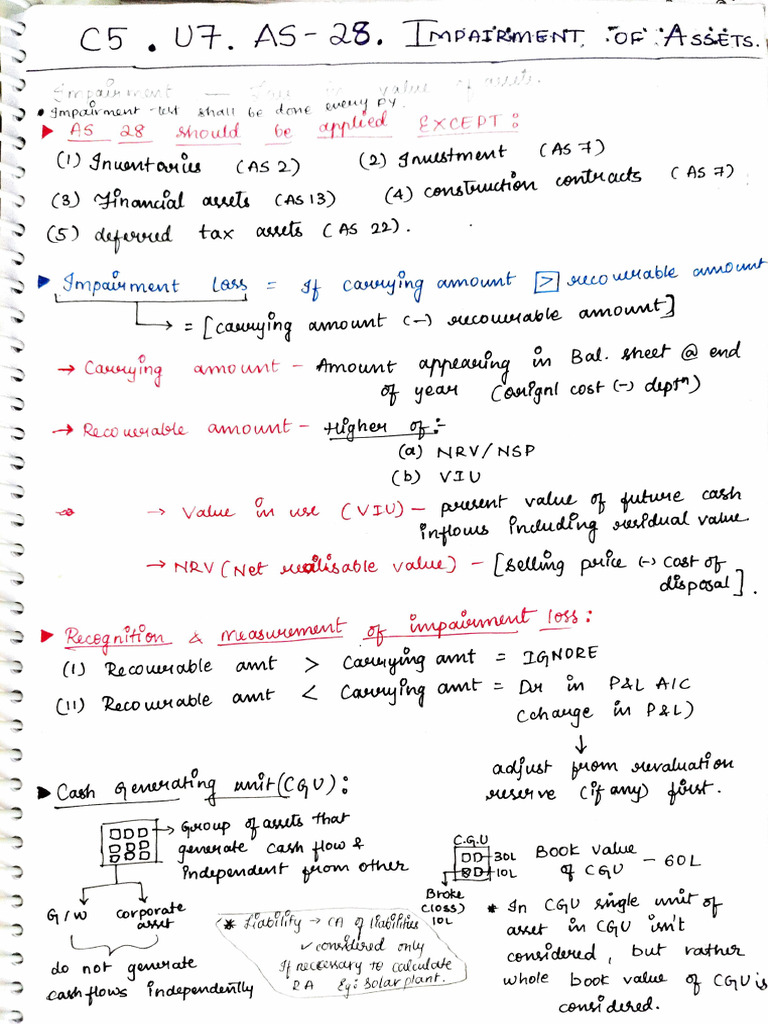 C5. U7. AS-28. IMPAIRMENT OF ASSETS.
Impairment — in value of assets.
• Impairment test shall be done every py.
▶ AS 28 should be applied EXCEPT:
(1) Inventories (AS 2) (2) Investment (AS 7)
(3) Financial assets (AS 13) (4) construction contracts (AS 7)
(5) deferred tax assets (AS 22).
▶ Impairment Loss = If carrying amount > recoverable amount
= [carrying amount (-) recoverable amount]
→ Carrying amount - Amount appearing in Bal. sheet @ end
of year (orignl cost (-) deptn)
→ Recoverable amount - Higher of:-
(a) NRV/NSP
(b) VIU
→ Value in use (VIU) - present value of future cash
inflows including residual value.
→ NRV (Net realisable value) - [selling price (-) cost of
disposal].
▶ Recognition & measurement of impairment loss:
(I) Recoverable amt > Carrying amt = IGNORE
(II) Recoverable amt < Carrying amt = Dr in P&L A/C
(change in P&L)
↓
adjust from revaluation
reserve (if any) first.
▶ Cash generating unit (CGU):
→ Group of assets that
generate cash flow &
independent from other
G/W corporate
asset
do not generate
cash flows independently
* Liability → CA of liabilities
✓ considered only
If necessary to calculate
RA Eg: Solar plant.
C.G.U
30L
10L
Broke
(loss)
10L
Book value
of CGU - 60L
* In CGU single unit of
asset in CGU isn't
considered, but rather
whole book value of CGU is
considered.